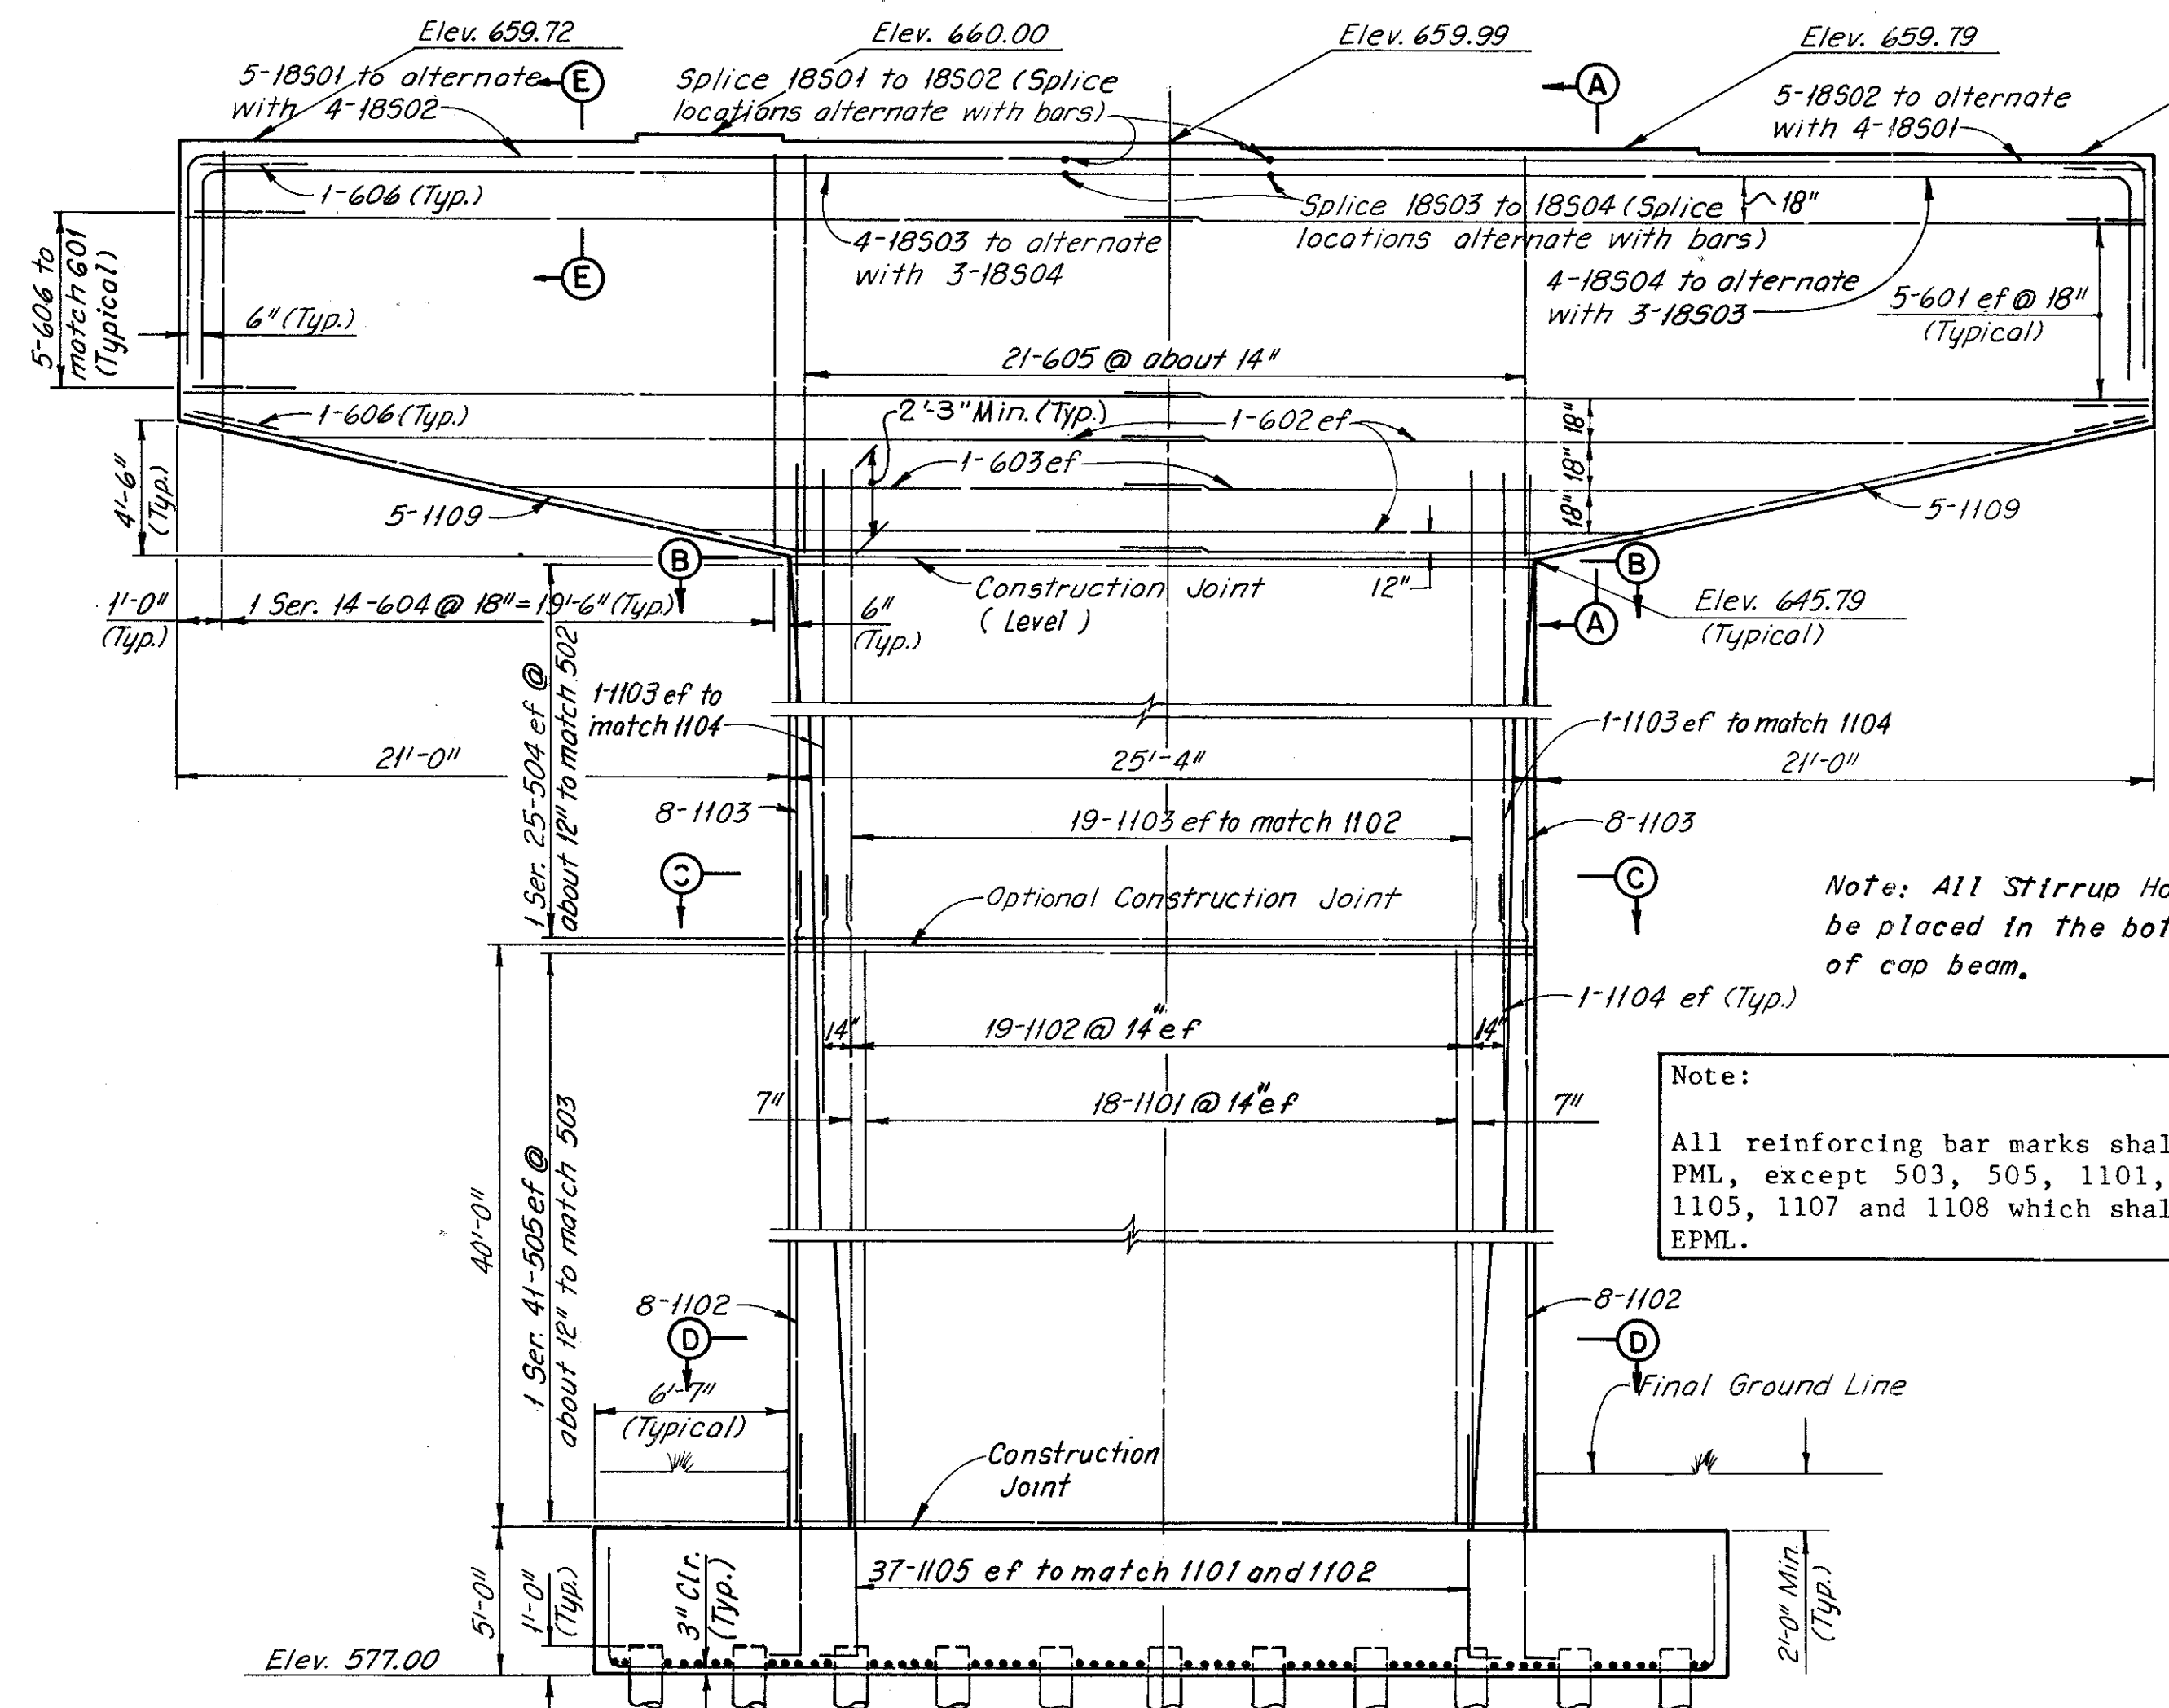 Elev. 659.72
Elev. 660.00
Elev. 659.99
Elev. 659.79
5-18S01 to alternate
with 4-18S02
E
Splice 18S01 to 18S02 (Splice
locations alternate with bars)
A
5-18S02 to alternate
with 4-18S01
1-606 (Typ.)
Splice 18S03 to 18S04 (Splice
locations alternate with bars)
18"
5-606 to
match 601
(Typical)
E
4-18S03 to alternate
with 3-18S04
4-18S04 to alternate
with 3-18S03
5-601 ef @ 18"
(Typical)
6" (Typ.)
21-605 @ about 14"
1-606 (Typ.)
2'-3" Min. (Typ.)
1-602 ef
18"
18"
18"
1-603 ef
4'-6"
(Typ.)
5-1109
5-1109
B
B
Construction Joint
(Level)
12"
1'-0"
(Typ.)
1 Ser. 14-604 @ 18" = 19'-6" (Typ.)
6"
(Typ.)
A
Elev. 645.79
(Typical)
1 Ser. 25-504 ef @
about 12" to match 502
1-1103 ef to
match 1104
1-1103 ef to match 1104
21'-0"
25'-4"
21'-0"
8-1103
19-1103 ef to match 1102
8-1103
C
C
Optional Construction Joint
Note: All Stirrup Ho
be placed in the bot
of cap beam.
1-1104 ef (Typ.)
14"
19-1102 @ 14" ef
14"
7"
18-1101 @ 14" ef
7"
Note:
All reinforcing bar marks shal
PML, except 503, 505, 1101,
1105, 1107 and 1108 which shal
EPML.
40'-0"
1 Ser. 41-505 ef @
about 12" to match 503
8-1102
8-1102
D
D
6'-7"
(Typical)
Final Ground Line
Construction
Joint
5'-0"
1'-0"
(Typ.)
3" Clr.
(Typ.)
37-1105 ef to match 1101 and 1102
2'-0" Min.
(Typ.)
Elev. 577.00